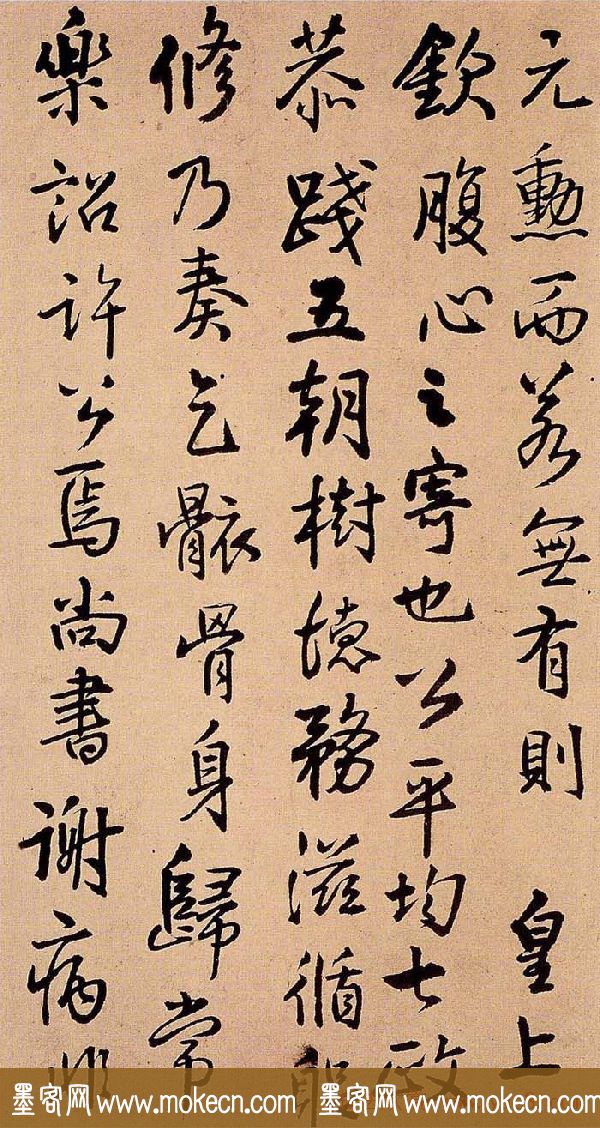 元勳而若無有則　皇上
欽腹心之寄也公平均七政
恭踐五朝樹德務滋循
修乃奏乞骸骨身歸常
樂詔許公焉尚書謝病
墨客网 www.mokecn.com 墨客网 www.mokecn.com